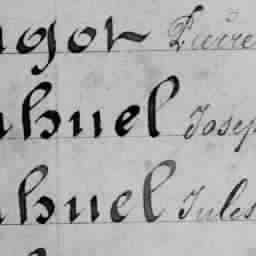 ngor Pierre
uhuel Josep
uhuel Jules